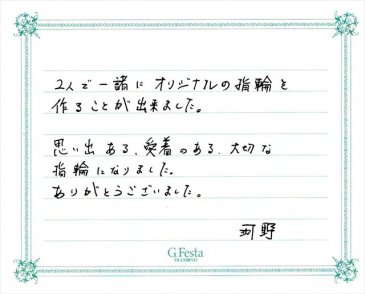 2人で一緒に オリジナルの指輪を
作ることが出来ました。
思い出ある、愛着のある、大切な
指輪になりました。
ありがとうございました。
野
G.Festa
DIAMOND